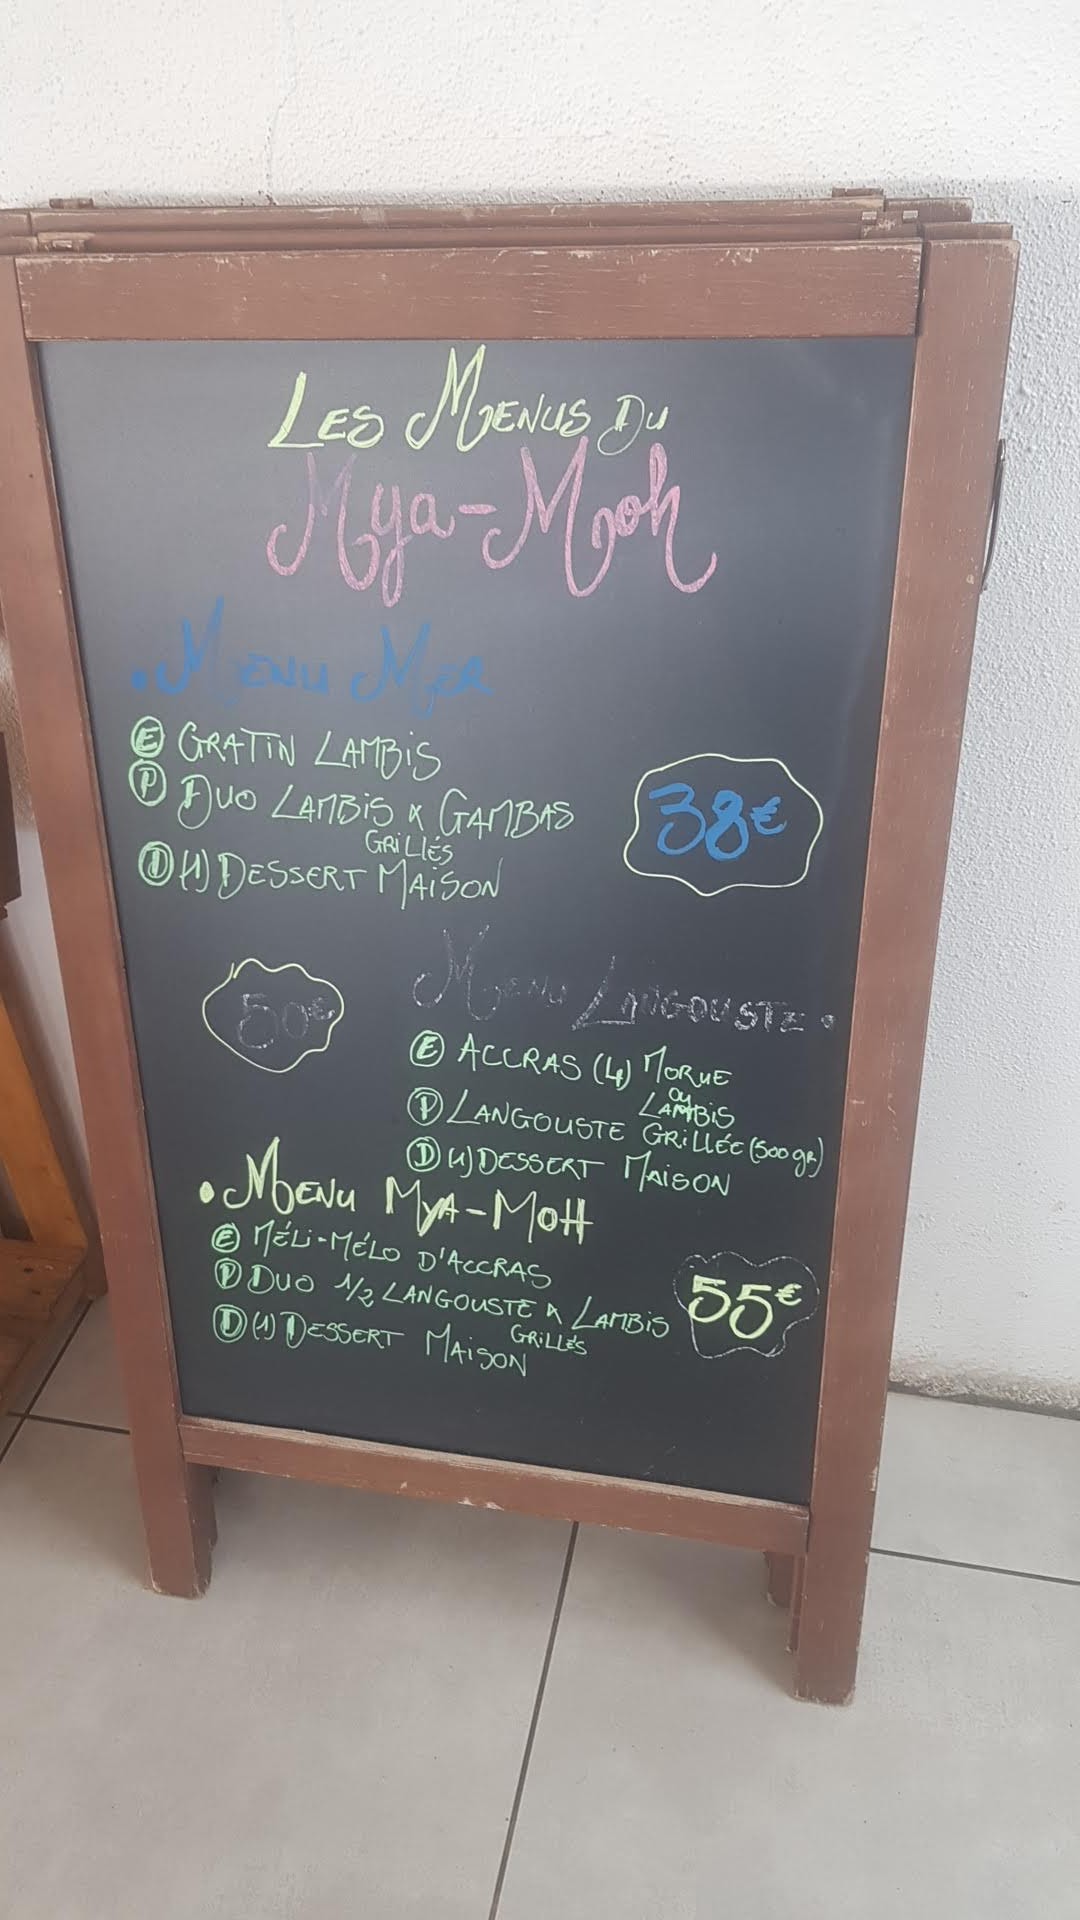 Les Menus Du
Mya-Moh
• Menu Mer
Ⓔ Gratin Lambis
Ⓟ Duo Lambis & Gambas
Grillés
Ⓓ (1) Dessert Maison
38€
Menu Langouste •
50€
Ⓔ Accras (4) Morue
ou
Lambis
Ⓟ Langouste Grillée (500gr)
Ⓓ (1) Dessert Maison
• Menu Mya-Moh
Ⓔ Méli-Mélo d'Accras
Ⓟ Duo 1/2 Langouste & Lambis
Grillés
Ⓓ (1) Dessert Maison
55€